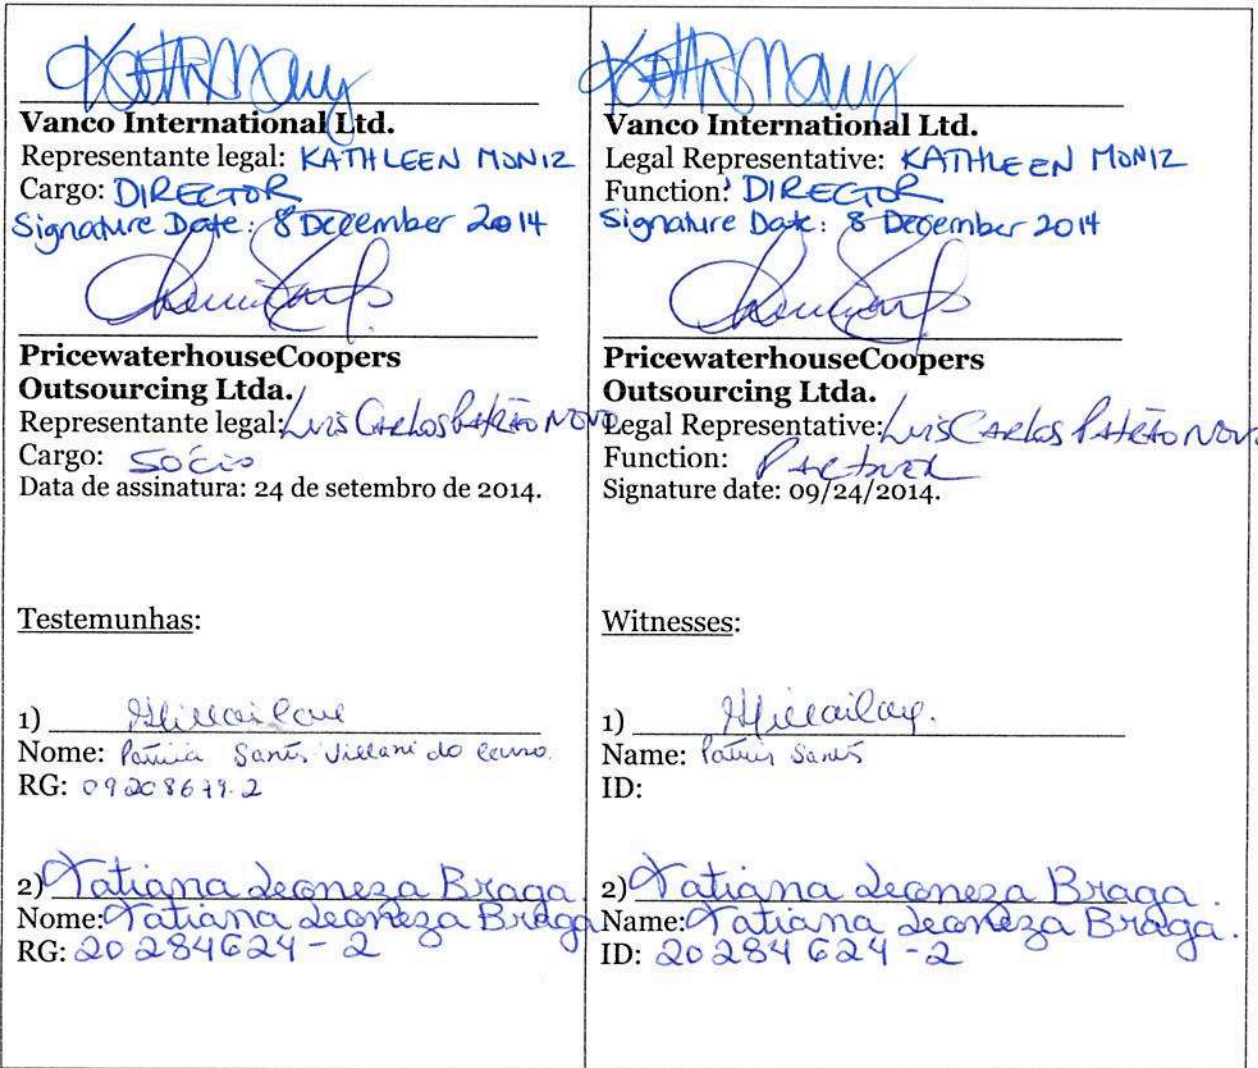 Vanco International Ltd.
Representante legal: KATHLEEN MONIZ
Cargo: DIRECTOR
Signature Date: 8 December 2014
PricewaterhouseCoopers
Outsourcing Ltda.
Representante legal: Luis Carlos Patrão Novo
Cargo: Sócio
Data de assinatura: 24 de setembro de 2014.
Testemunhas:
1)
Nome: Santos Villani do
RG:
2) Tatiana Leoneza Braga.
Nome: Tatiana Leoneza Braga
RG: 20284624-2
Vanco International Ltd.
Legal Representative: KATHLEEN MONIZ
Function: DIRECTOR
Signature Date: 8 December 2014
PricewaterhouseCoopers
Outsourcing Ltda.
Legal Representative: Luis Carlos Patrão Novo
Function: Partner
Signature date: 09/24/2014.
Witnesses:
1)
Name: Santos
ID:
2) Tatiana Leoneza Braga.
Name: Tatiana Leoneza Braga.
ID: 20284624-2